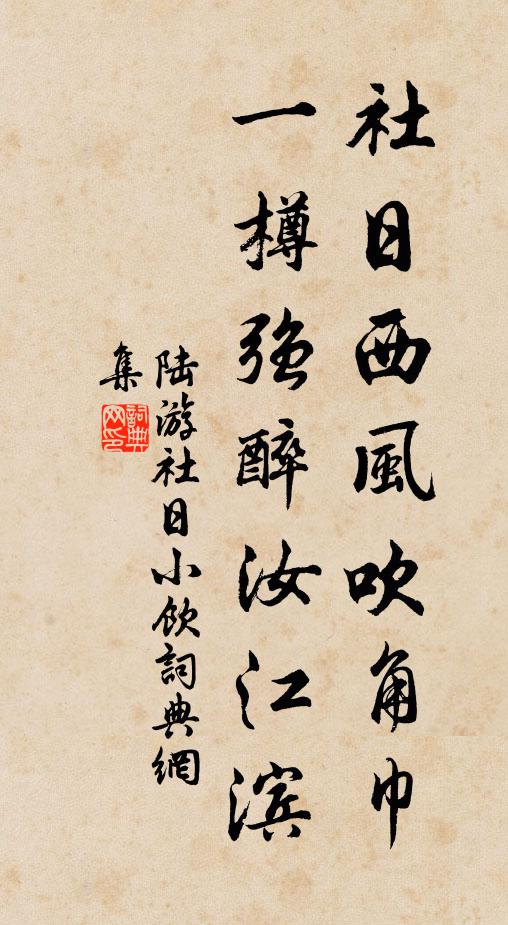 社日西風吹角巾
一樽强醉汝江滨
陆游社日小飲詞典網
集
詞典网印